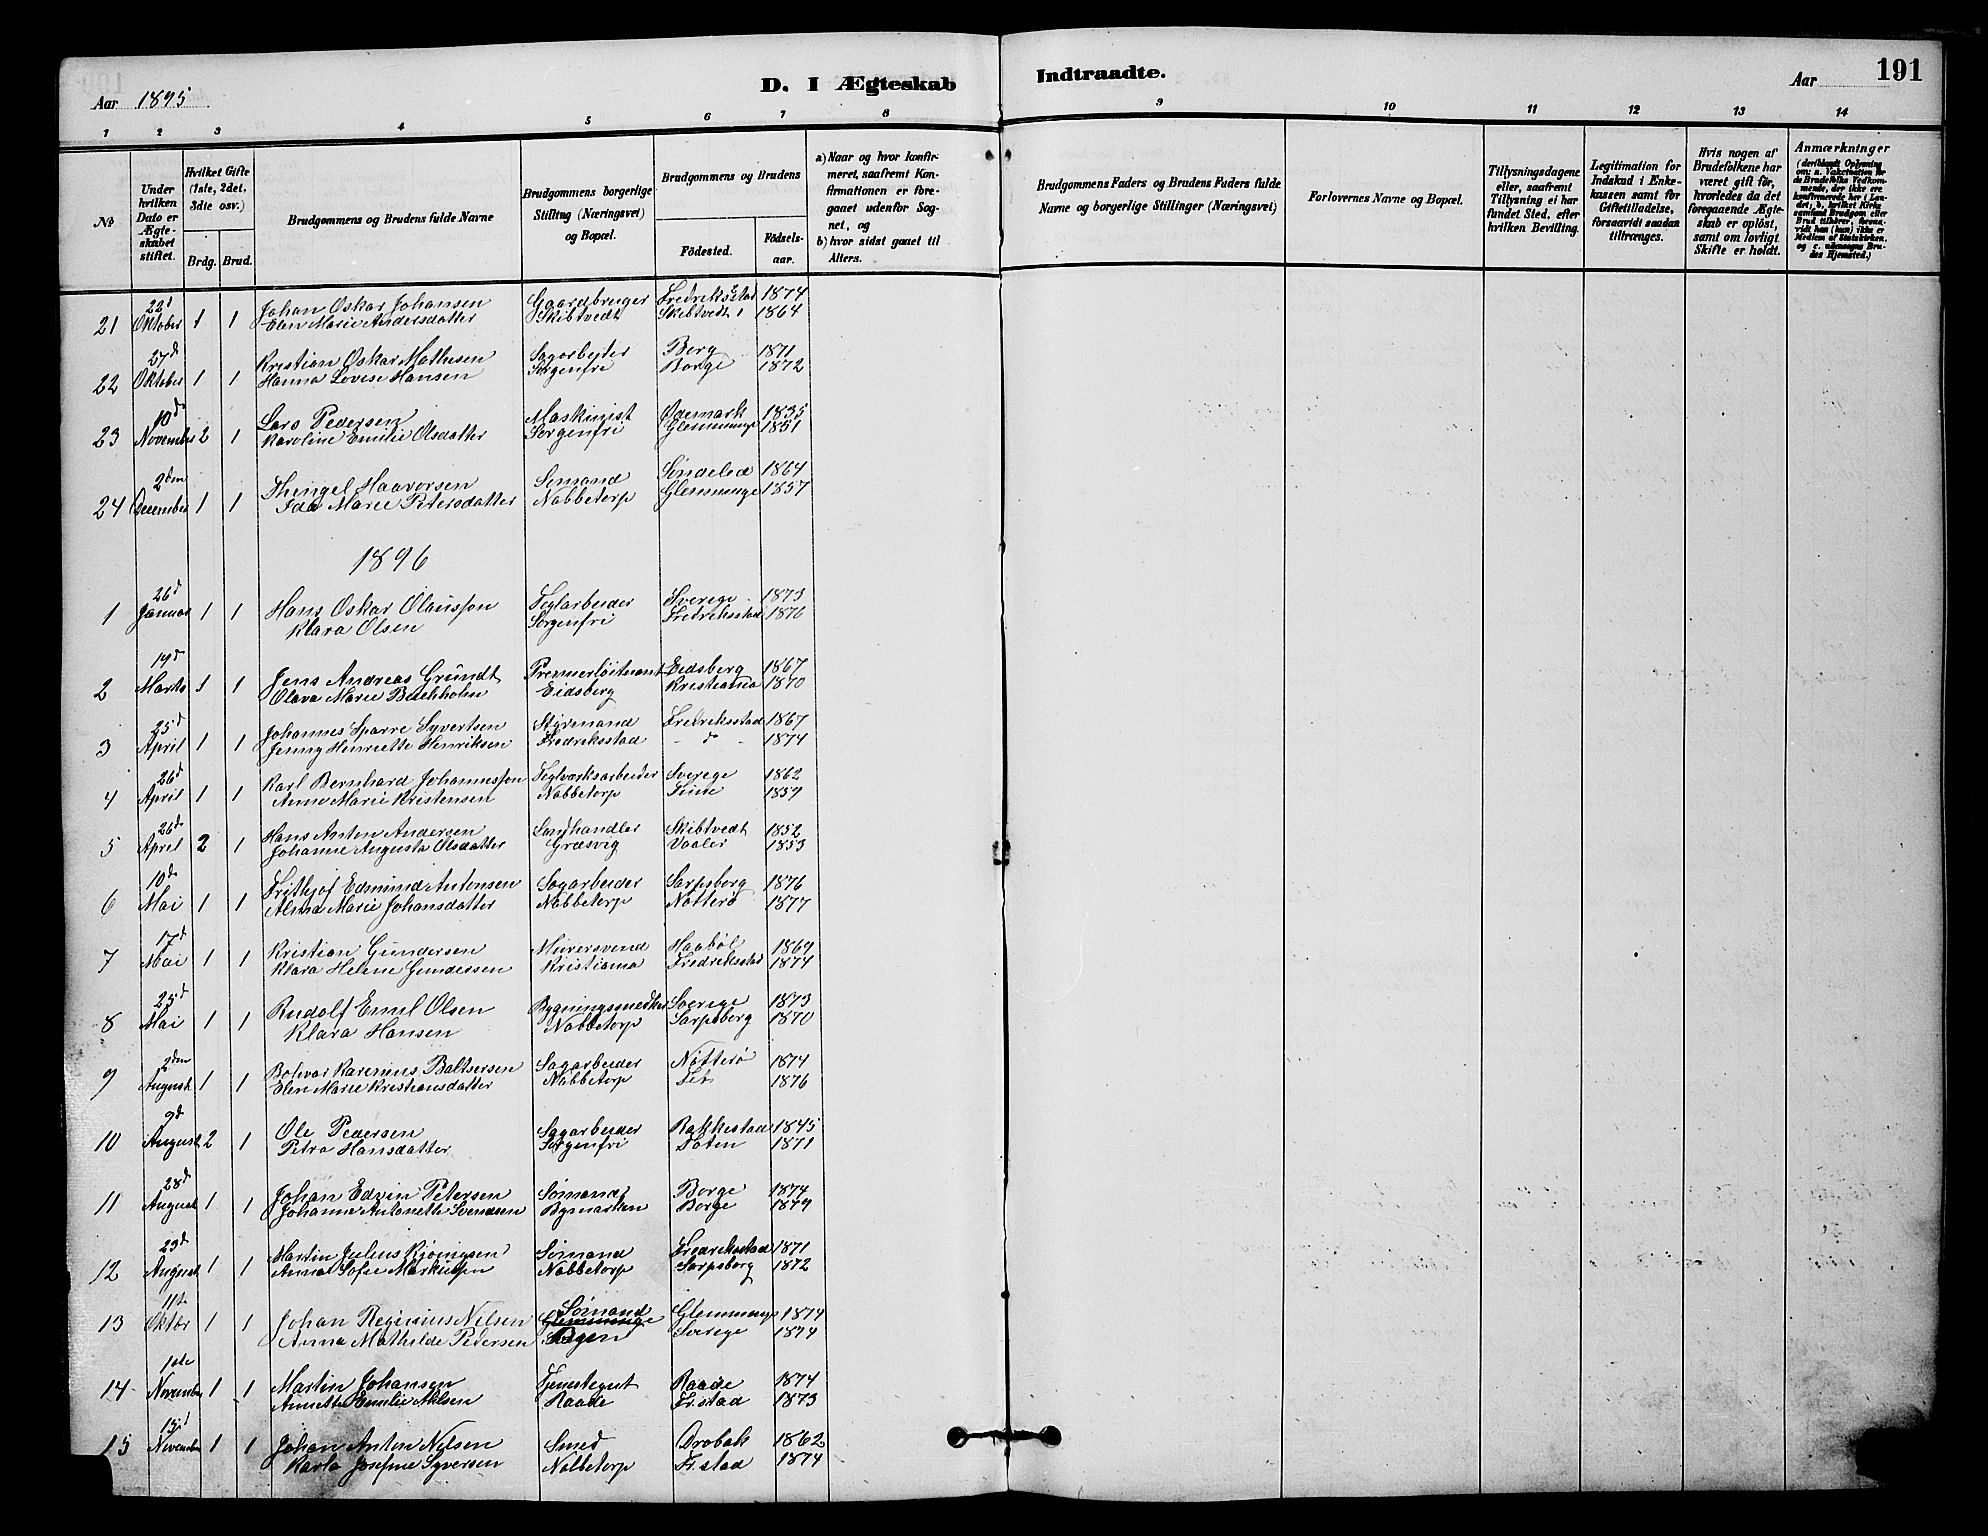 Aar 1895
D. I Ægteskab Indtraadte.
Aar 191
1 2 3 4 5 6 7 8 9 10 11 12 13 14
№
Under hvilken Dato er Ægteskabet stiftet.
Hvilket Gifte (1ste, 2det, 3die osv.)
Brdg. Brud.
Brudgommens og Brudens fulde Navne
Brudgommens borgerlige Stilling (Næringsvei) og Bopæl.
Brudgommens og Brudens
Fødested. Fødselsaar.
a) Naar og hvor konfirmeret, saafremt Konfirmationen er foregaaet udenfor Sognet, og
b) hvor sidst gaaet til Alters.
Brudgommens Faders og Brudens Faders fulde Navne og borgerlige Stillinger (Næringsvei)
Forlovernes Navne og Bopæl.
Tillysningsdagene eller, saafremt Tillysning ei har fundet Sted, efter hvilken Bevilling.
Legitimation for Indskud i Enkekassen samt for Giftetilladelse, forsaavidt saadan tiltrænges.
Hvis nogen af Brudefolkene har været gift før, hvorledes da det foregaaende Ægteskab er opløst, samt om lovligt Skifte er holdt.
Anmærkninger
22d Johan Oskar Johansen Gaardbruger Fredriksstad 1874
21 Oktober 1 1 Elen Marie Andersdatter Skibtvedt Skibtvedt 1864
27d Kristian Oskar Mathisen Sagarbejder Berg 1871
22 Oktober 1 1 Hanna Lovise Hansen Sorgenfri Borge 1872
10d Lars Pedersen Maskinist Ødemark 1835
23 November 2 1 Karoline Emilie Olsdatter Sorgenfri Glemminge 1851
2den Thingel Haavorsen Sømand Søndeled 1864
24 December 1 1 Ida Marie Petersdatter Nabbetorp Glemminge 1857
1896
26d Hans Oskar Olausson Teglarbeider Sverege 1873
1 Januar 1 1 Klara Olsen Sorgenfri Fredriksstad 1876
19d Jens Andreas Grundt Premierløitnant Eidsberg 1867
2 Marts 1 1 Olava Marie Buchholm Eidsberg Kristiania 1870
25d Johannes Sparre Syvertsen Styrmand Fredriksstad 1867
3 April 1 1 Jenny Henriette Henriksen Fredriksstad - d - 1874
26d Karl Bernhard Johannesson Teglværksarbeider Sverege 1862
4 April 1 1 Anne Marie Kristensen Nabbetorp 1859
26de Hans Anton Andersen Landhandler Skibtvedt 1852
5 April 2 1 Johanne Augusta Olsdatter Græsvig Vaaler 1853
10de Fritjof Edmund Antonsen Sagarbeider Sarpsborg 1876
6 Mai 1 1 Alma Marie Johansdatter Nabbetorp Nøtterø 1877
17d Kristian Gundersen Murersvend Haabøl 1869
7 Mai 1 1 Klara Helene Gundersen Kristiania Fredriksstad 1874
25d Rudolf Emil Olsen Bygningssnedker Sverege 1873
8 Mai 1 1 Klara Hansen Nabbetorp Sarpsborg 1870
2den Bolivar Karenius Baltsersen Sagarbeider Nøtterø 1874
9 August 1 1 Elen Marie Kristiansdatter Nabbetorp Fet 1876
9d Ole Pedersen Sagarbeider Rakkestad 1845
10 August 2 1 Petra Hansdatter Sorgenfri Toten 1871
28d Johan Edvin Petersen Sømand Borge 1874
11 August 1 1 Johanne Antonette Svendsen Bymarken Borge 1879
23d Martin Julius Kjønigsen Sømand Fredriksstad 1871
12 August 1 1 Anna Sofie Markussen Nabbetorp Sarpsborg 1872
11te Johan Reginius Nilsen Sømand Glemminge 1874
13 Oktbr 1 1 Anna Mathilde Pedersen Glemminge Sverege 1874
1ste Martin Johansen Tjenestegut Raade 1874
14 November 1 1 Annette Emilie Nilsen Raade Fr.stad 1873
15d Johan Anton Nilsen Smed Drøbak 1862
15 November 1 1 Karla Josefine Syversen Nabbetorp Fr.stad 1874